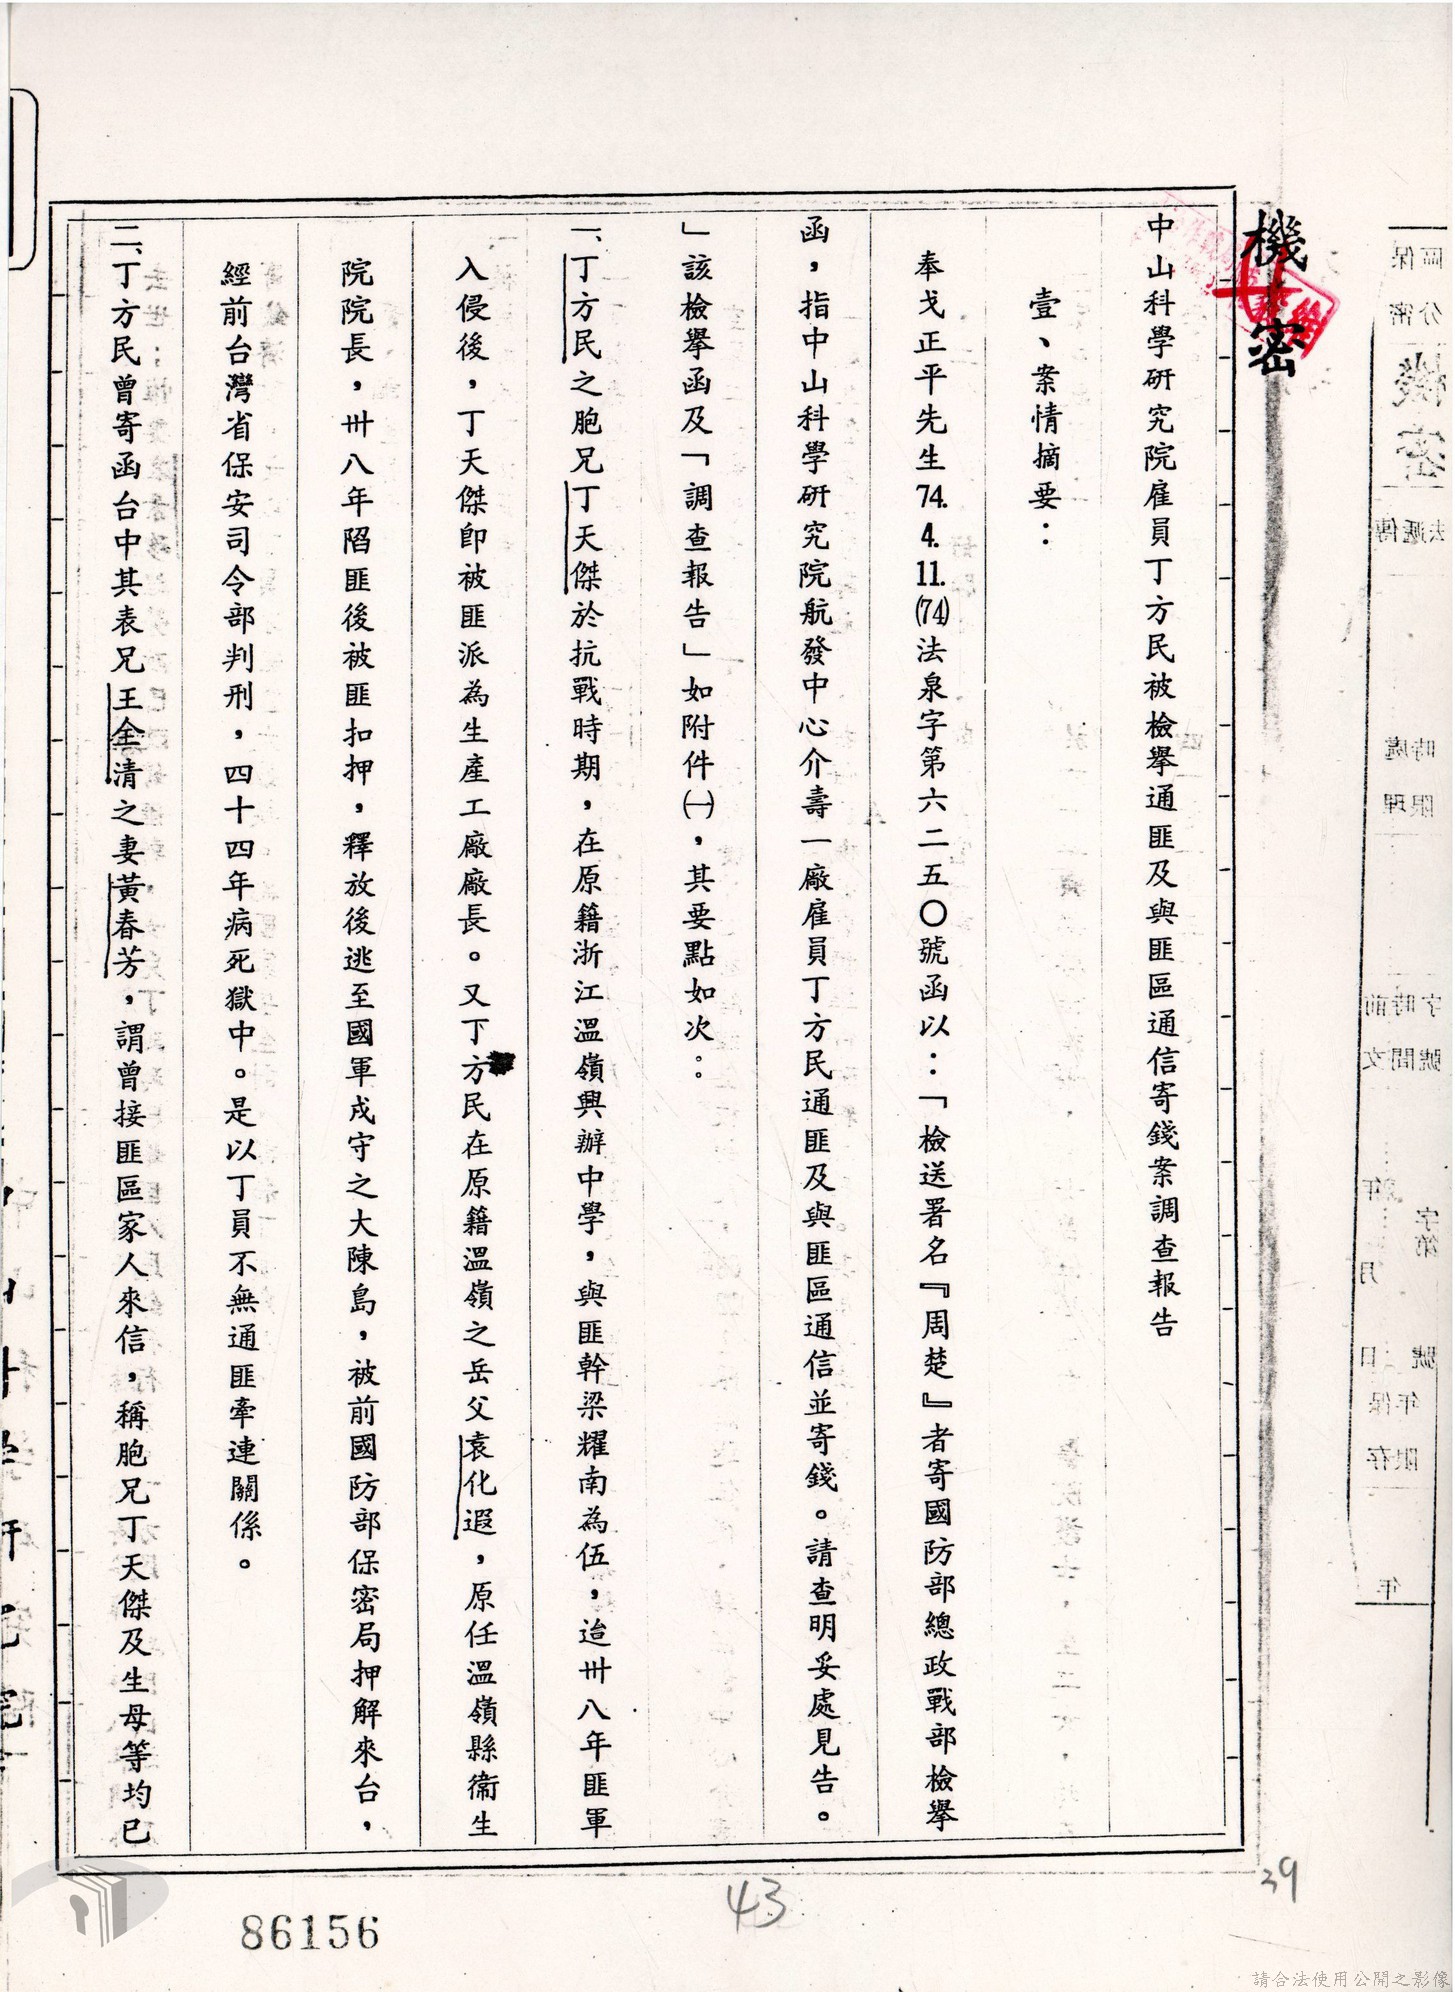 機密
中山科學研究院雇員丁方民被檢舉通匪及與匪區通信寄錢案調查報告
壹、案情摘要：
奉戈正平先生74.4.11.(74)法泉字第六二五〇號函以：「檢送署名『周楚』者寄國防部總政戰部檢舉
函，指中山科學研究院航發中心介壽一廠雇員丁方民通匪及與匪區通信並寄錢。請查明妥處見告。
」該檢舉函及「調查報告」如附件㈠，其要點如次。。
一、丁方民之胞兄丁天傑於抗戰時期，在原籍浙江溫嶺興辦中學，與匪幹梁耀南為伍，迨卅八年匪軍
入侵後，丁天傑即被匪派為生產工廠廠長。又丁方民在原籍溫嶺之岳父袁化遐，原任溫嶺縣衛生
院院長，卅八年陷匪後被匪扣押，釋放後逃至國軍戍守之大陳島，被前國防部保密局押解來台，
經前台灣省保安司令部判刑，四十四年病死獄中。是以丁員不無通匪牽連關係。
二、丁方民曾寄函台中其表兄王全清之妻黃春芳，謂曾接匪區家人來信，稱胞兄丁天傑及生母等均已
86156
43
39
請合法使用公開之影像